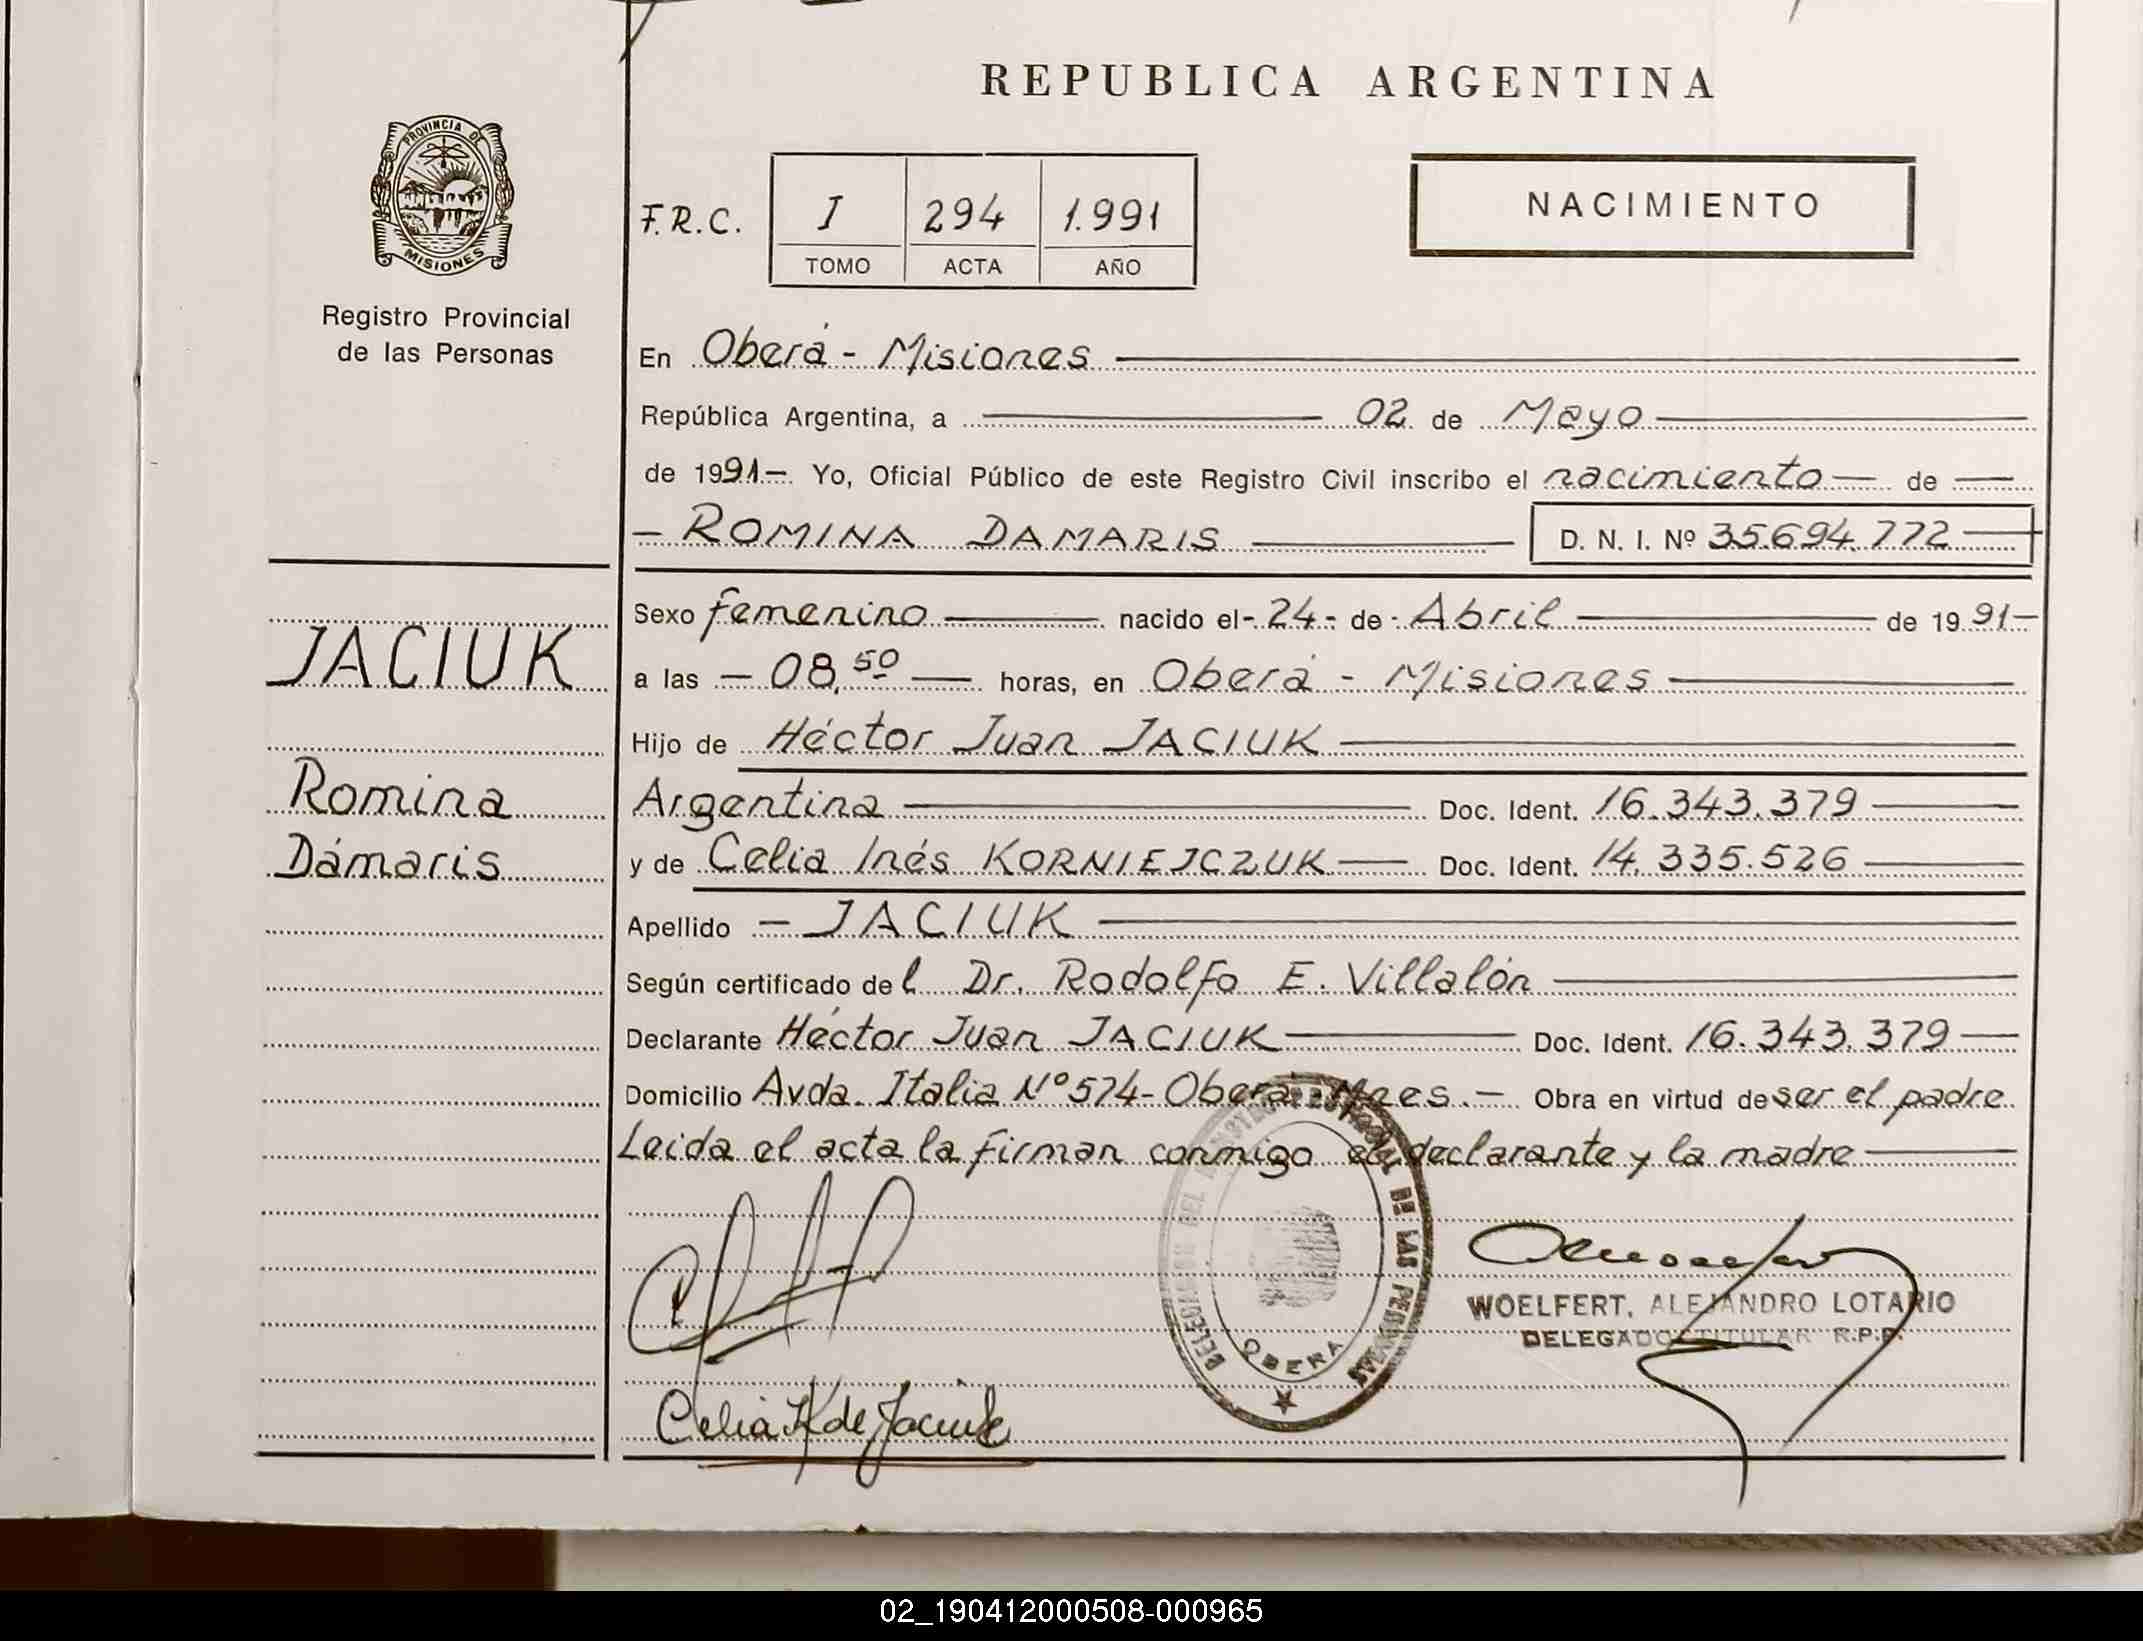 REPUBLICA ARGENTINA
PROVINCIA DE
MISIONES
Registro Provincial
de las Personas
F.R.C. I 294 1.991
TOMO ACTA AÑO
NACIMIENTO
En Oberá - Misiones
República Argentina, a 02 de Mayo
de 1991- Yo, Oficial Público de este Registro Civil inscribo el nacimiento de
- ROMINA DAMARIS D. N. I. Nº 35.694.772
Sexo femenino nacido el - 24 - de - Abril de 1991-
JACIUK
a las - 08,50 horas, en Oberá - Misiones
Hijo de Héctor Juan JACIUK
Romina
Argentina Doc. Ident. 16.343.379
Dámaris
y de Celia Inés KORNIEJCZUK Doc. Ident. 14.335.526
Apellido - JACIUK
Según certificado del Dr. Rodolfo E. Villalón
Declarante Héctor Juan JACIUK Doc. Ident. 16.343.379
Domicilio Avda. Italia Nº 574- Oberá Mnes.- Obra en virtud de ser el padre
Leida el acta la firman conmigo el declarante y la madre
DE LAS PERSONAS
OBERA
WOELFERT, ALEJANDRO LOTARIO
DELEGADO TITULAR R.P.P.
Celia K de Jaciuk
02_190412000508-000965